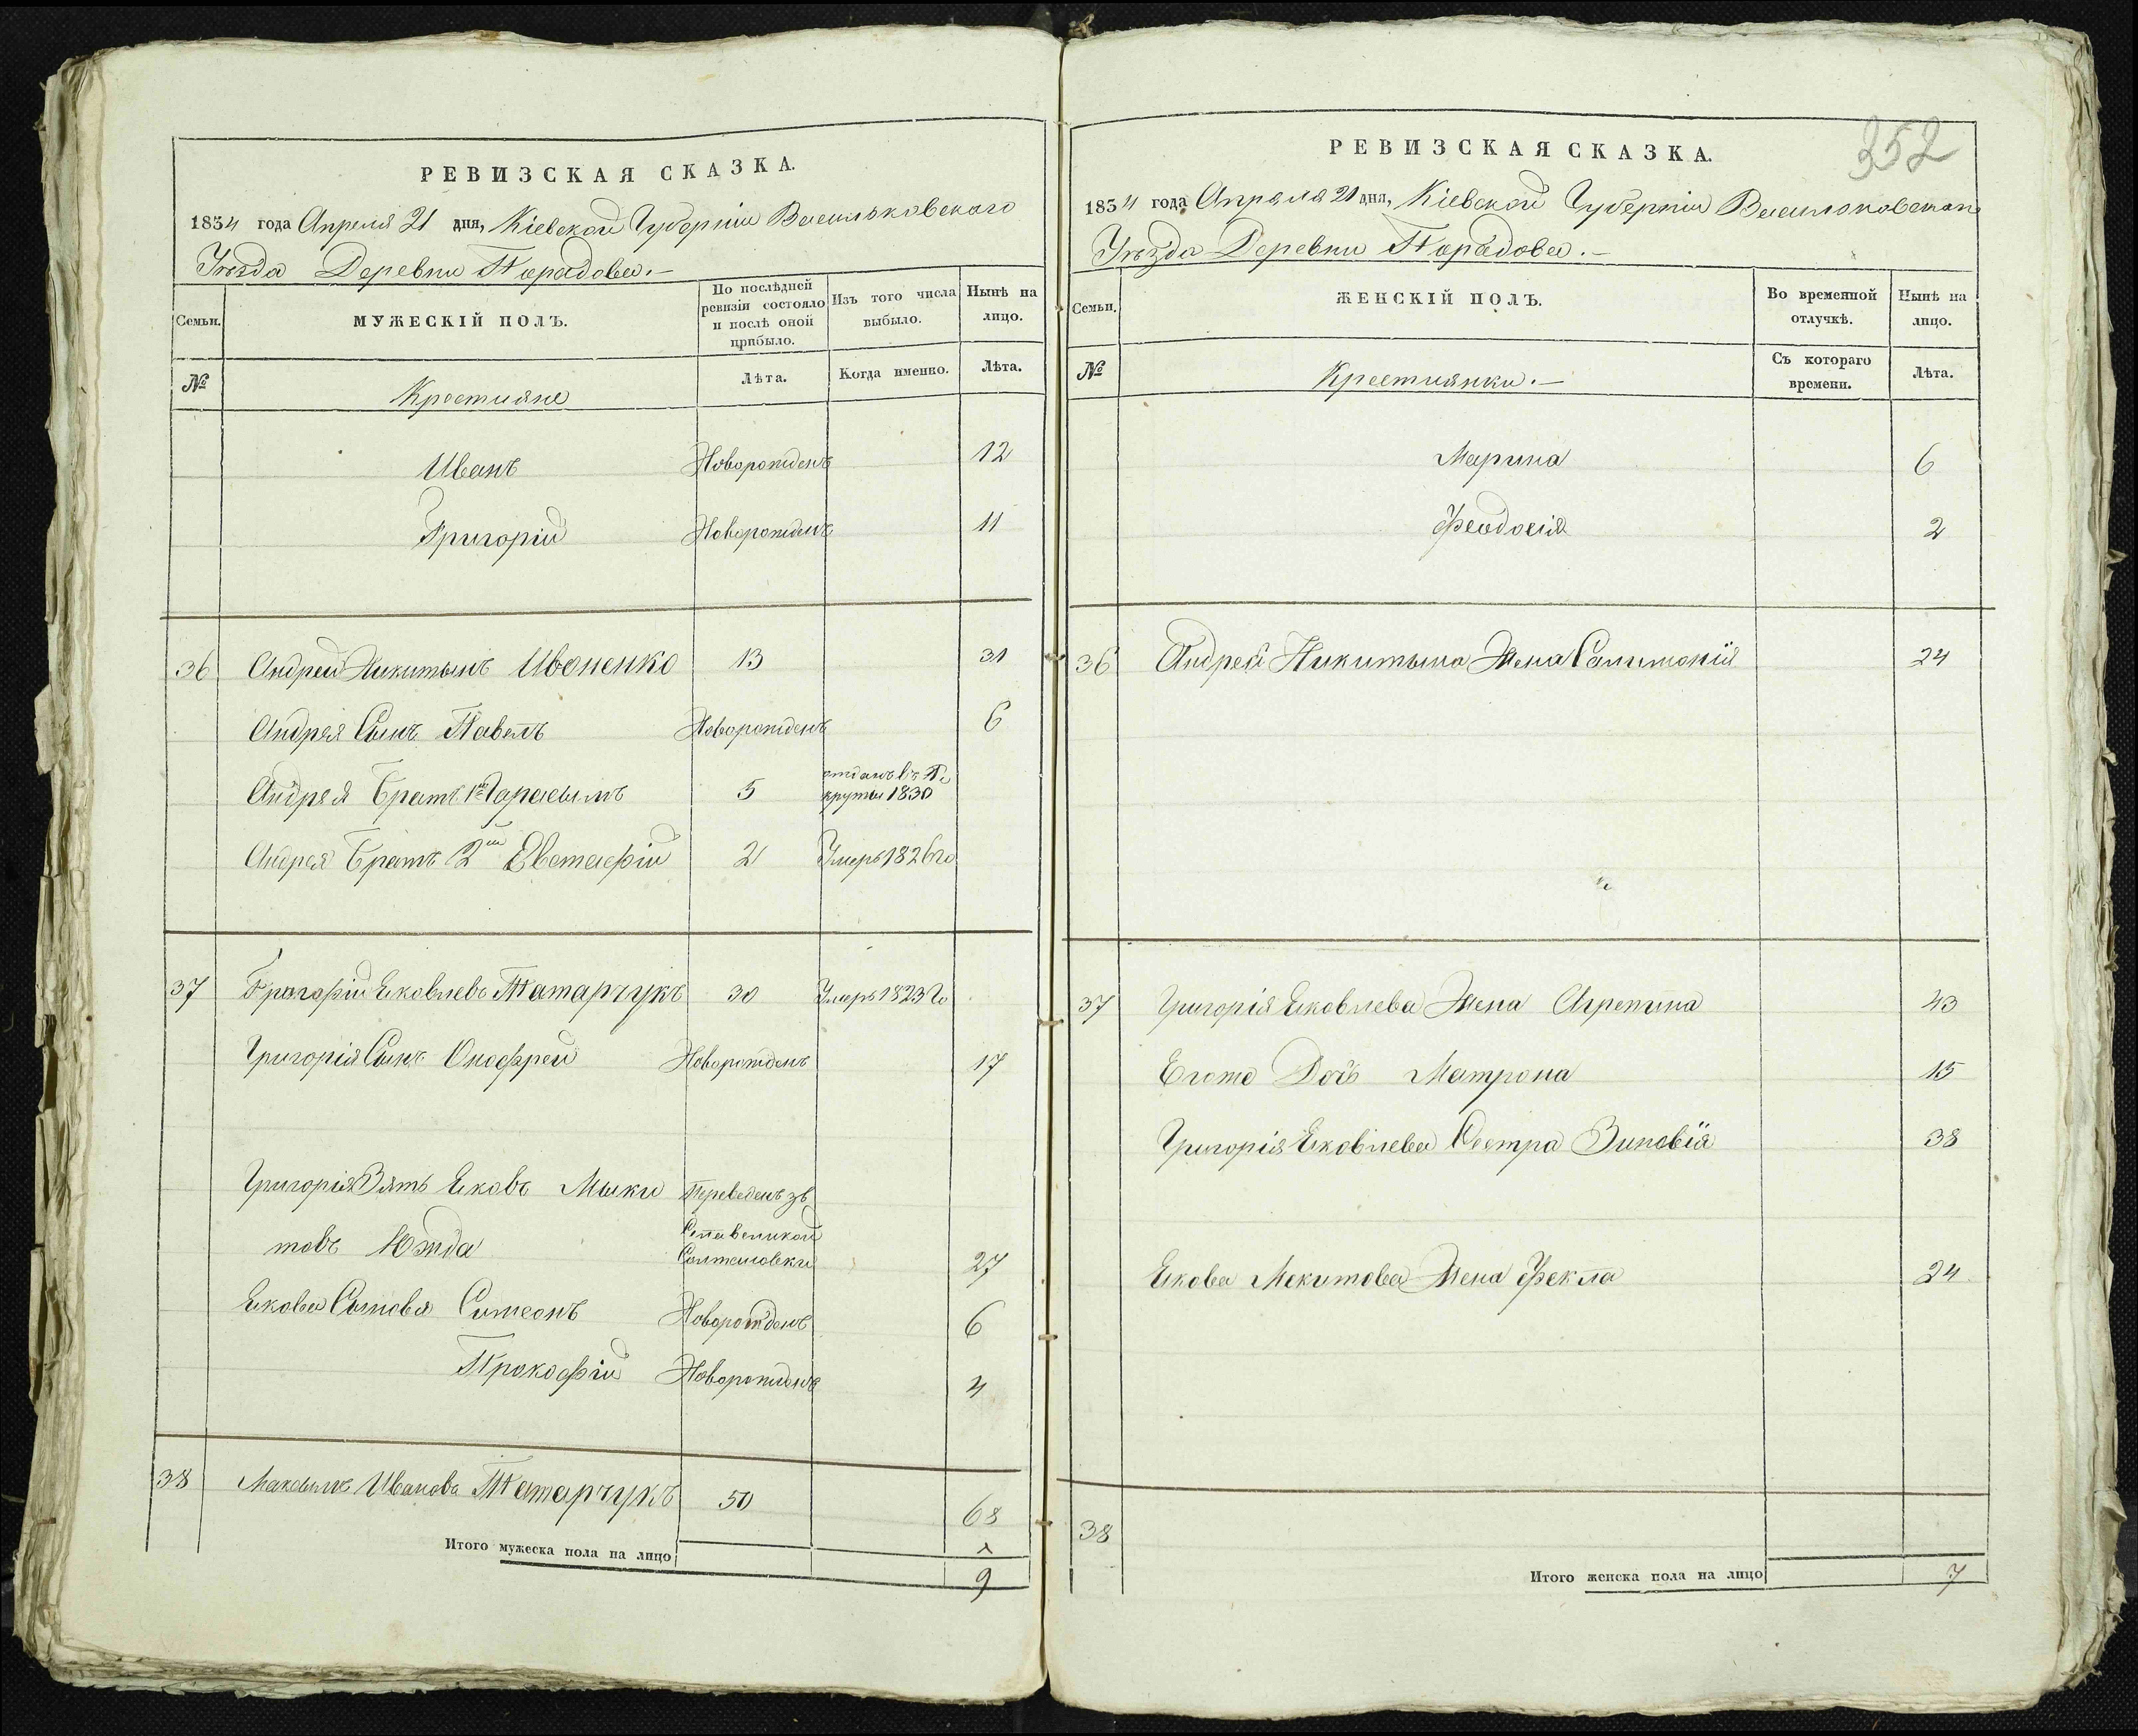 РЕВИЗСКАЯ СКАЗКА.
1834 года Апреля 21 дня, Кіевской Губерніи Васильковскаго
Уѣзда Деревни Порадовки.—
Семьи.
МУЖЕСКІЙ ПОЛЪ.
По послѣдней ревизіи состояло и послѣ оной прибыло.
Изъ того числа выбыло.
Нынѣ на лицо.
№
Крестияне
Лѣта.
Когда именно.
Лѣта.
Иванъ Новорожденъ 12
Григорій Новорожденъ 11
36 Андрей Никитынъ Ивоненко 13 31
Андрея Сынъ Павелъ Новорожденъ 6
Андрея Братъ 1й Гарасымъ 5 отданъ въ Рекруты 1830
Андрея Братъ 2й Евстафій 2 Умеръ 1826го
37 Григорій Яковлевъ Татарчукъ 30 Умеръ 1823го
Григорія Сынъ Онофрей Новорожденъ 17
Григорія Зять Яковъ Мыки Переведенъ зъ
товъ Юзда Села великой
Солтановки 27
Якова Сыновья Симеонъ Новорожденъ 6
Прокофій Новорожденъ 4
38 Максымъ Ивановъ Татарчукъ 50 68
Итого мужеска пола на лицо 9
РЕВИЗСКАЯ СКАЗКА.
252
1834 года Апреля 21 дня, Кіевской Губерніи Васильковскаго
Уѣзда Деревни Порадовки.—
Семьи.
ЖЕНСКІЙ ПОЛЪ.
Во временной отлучкѣ.
Нынѣ на лицо.
№
Крестиянки.—
Съ котораго времени.
Лѣта.
Марина 6
Феодосія 2
36 Андрея Никитына Жена Салимонія 24
37 Григорія Яковлева Жена Агрепина 43
Егоже Дочь Матрона 15
Григорія Яковлева Сестра Зиновія 38
Якова Микитова Жена Фекла 24
38
Итого женска пола на лицо 7